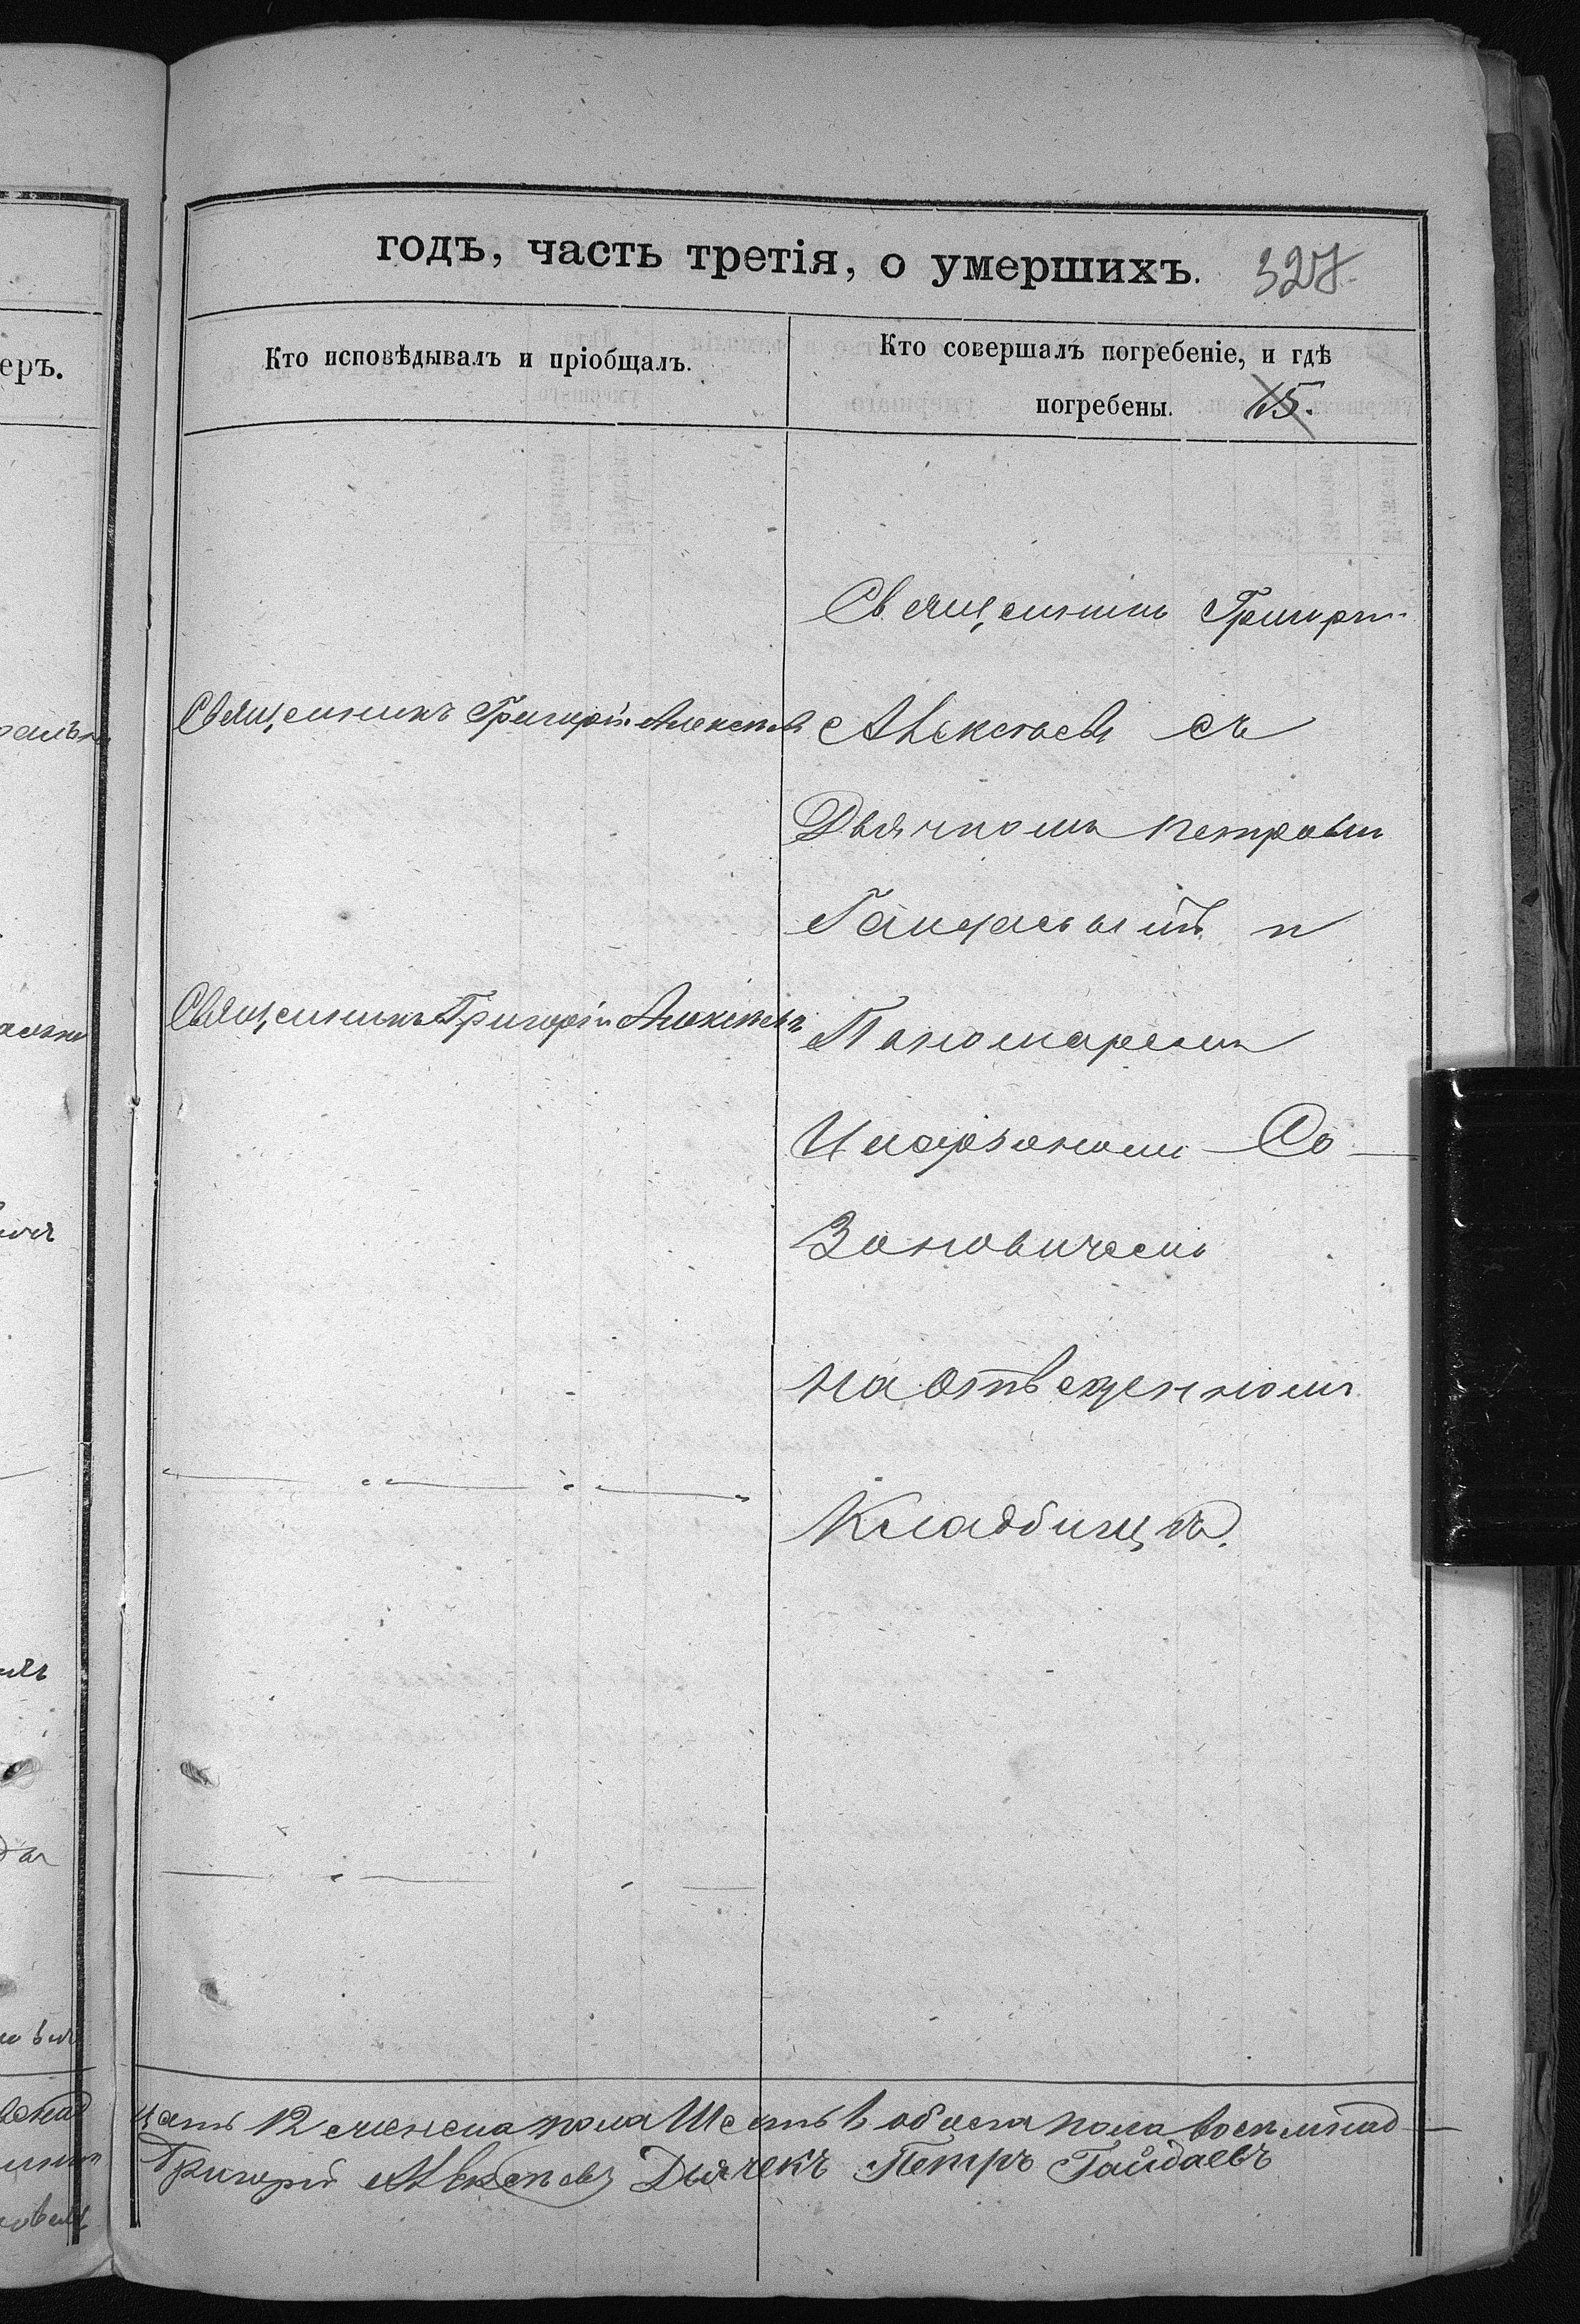 годъ, часть третія, о умершихъ. 327.
Кто исповѣдывалъ и пріобщалъ.
Кто совершалъ погребеніе, и гдѣ
погребены. 15.
еръ.
Священникъ Григорій Алексѣевъ
Священникъ Григорій Алексѣевъ
Священникъ Григорій
Алексѣевъ съ
Дьячкомъ Петромъ
Гайдаевымъ и
Пономаремъ
Со
Зоновичемъ
на отведенномъ
Кладбищѣ.
цать 12 женска пола Шесть 6 обоега пола восемнад
Григорій Алексѣевъ Дьячекъ Петръ Гайдаевъ